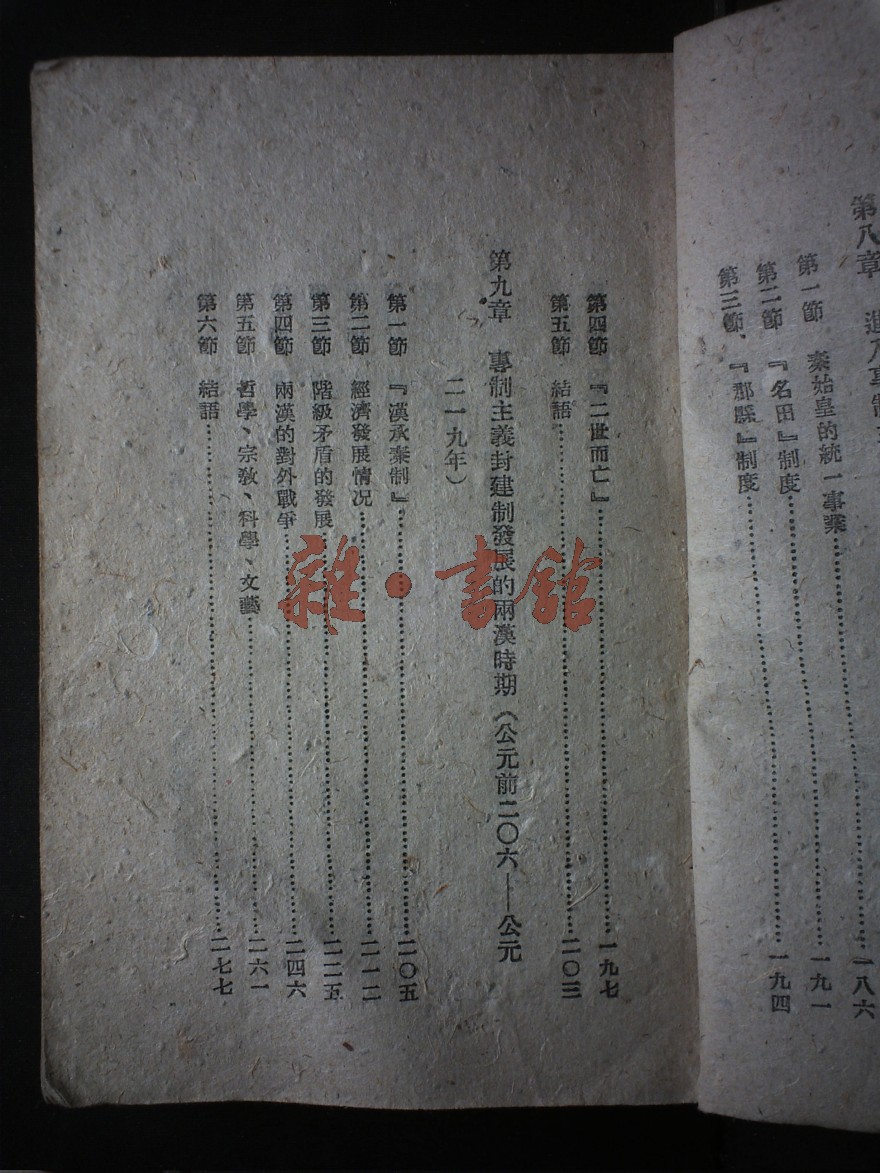 第八章
第一節 秦始皇的統一事業……一八六
第二節 『名田』制度……一九一
第三節、『郡縣』制度……一九四
第四節 『二世而亡』……一九七
第五節 結語……二〇三
第九章 專制主義封建制發展的兩漢時期(公元前二〇六——公元
二一九年)
第一節 『漢承秦制』……二〇五
第二節 經濟發展情况……二一二
第三節 階級矛盾的發展……二二五
第四節 兩漢的對外戰爭……二四六
第五節 哲學、宗教、科學、文藝……二六一
第六節 結語……二七七
雜·書館